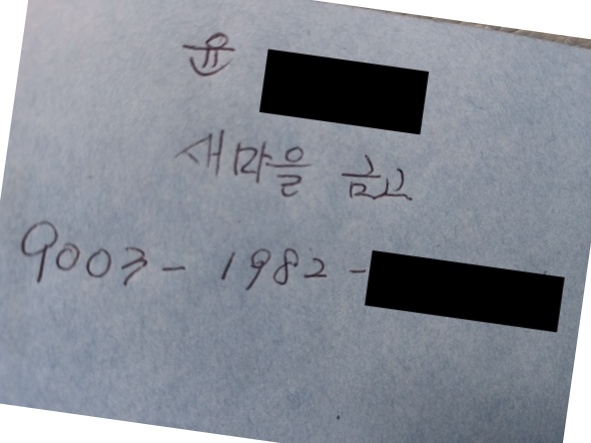 윤
새마을 금고
9003-1982-